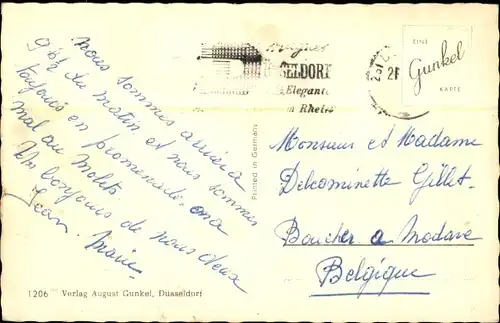 nous sommes arrivéra
9 6½ du matin et nous sommes
toujours en promenade. ona
mal au molets
Un bonjours de nous deux
Jean. Marie.
DÜSSELDORF
Elegante
am Rhein
EINE
Gunkel
KARTE
Printed in Germany
Monsieur et Madame
Delcominette Gillet.
Boucher a Modave
Belgique
1206 Verlag August Gunkel, Düsseldorf